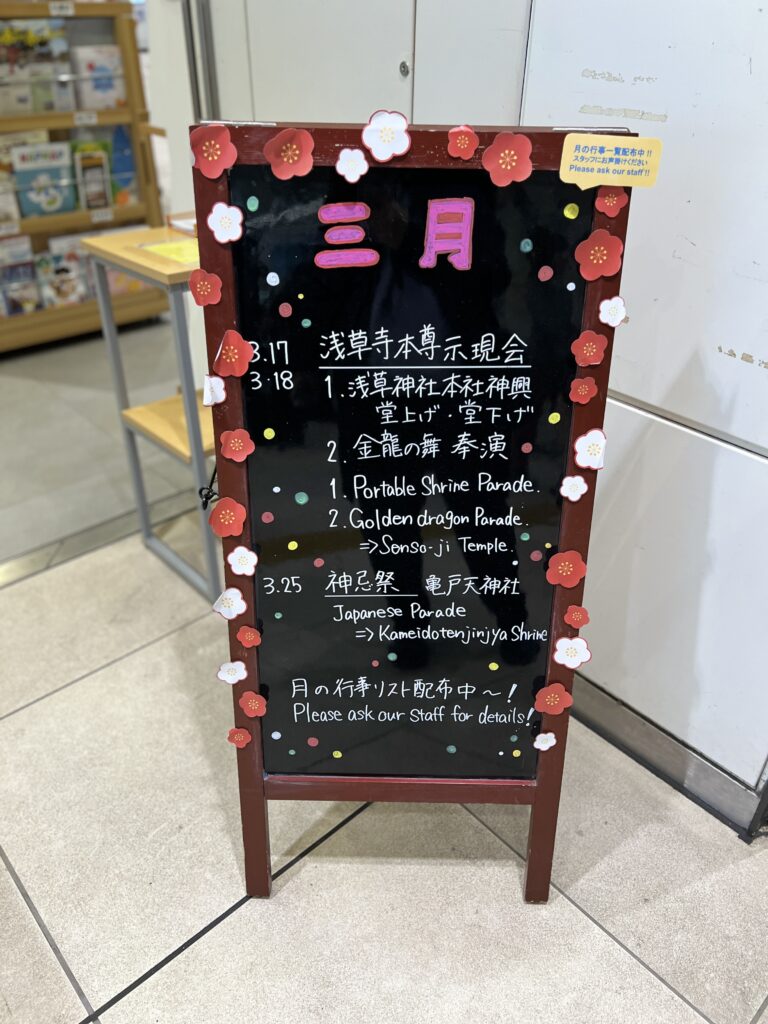 月の行事一覧配布中!!
スタッフにお声掛けください
Please ask our staff!!
三月
3.17 浅草寺本尊示現会
3.18 1.浅草神社本社神輿
堂上げ・堂下げ
2.金龍の舞 奉演
1.Portable Shrine Parade.
2.Golden dragon Parade.
⇒Senso-ji Temple.
3.25 神忌祭 亀戸天神社
Japanese Parade
⇒Kameidotenjinjya Shrine
月の行事リスト配布中〜!
Please ask our staff for details!